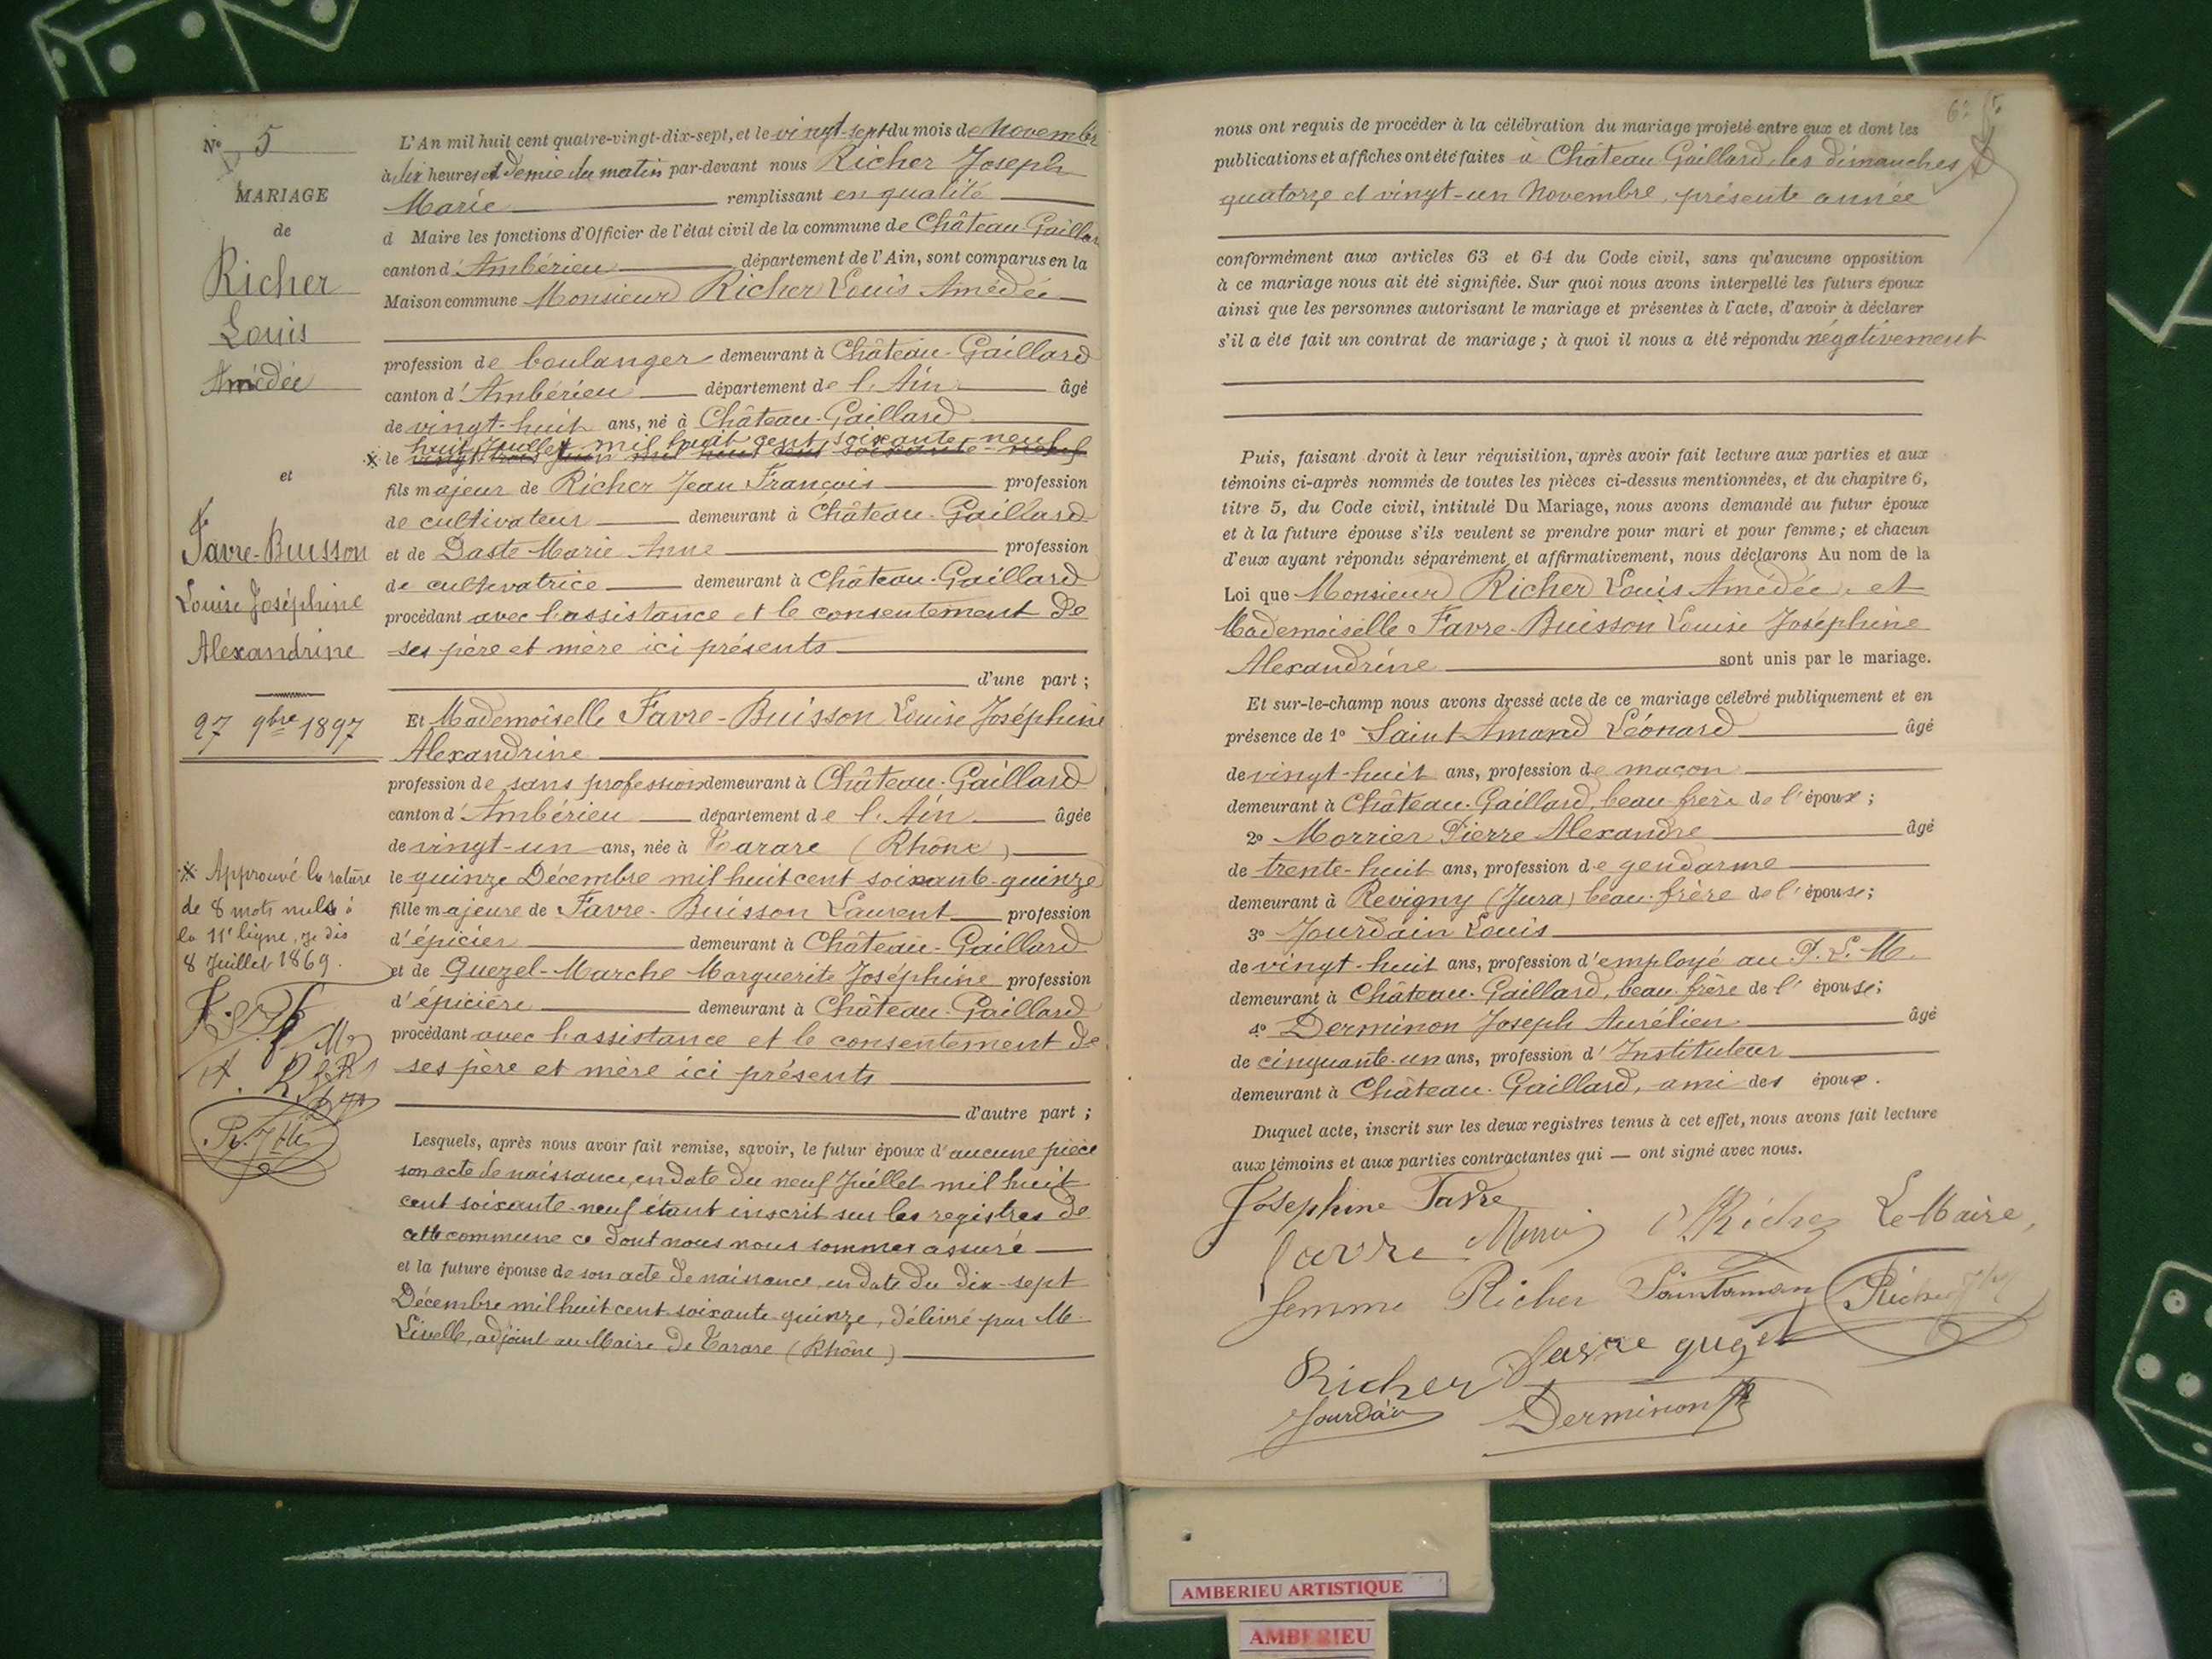 Nº 5
MARIAGE
de
Richer
Louis
Amédée
et
Favre-Buisson
Louise Joséphine
Alexandrine
27 9bre 1897
※ Approuvé la rature
de 8 mots nuls à
la 11e ligne, je dis
8 Juillet 1869.
L'An mil huit cent quatre-vingt-dix-sept, et le vingt-sept du mois de Novembre
à dix heures et demie du matin par-devant nous Richer Joseph
Marie remplissant en qualité
d Maire les fonctions d'Officier de l'état civil de la commune de Château-Gaillard
canton d'Ambérieu département de l'Ain, sont comparus en la
Maison commune Monsieur Richer Louis Amédée
profession de boulanger demeurant à Château-Gaillard
canton d'Ambérieu département de l'Ain âgé
de vingt-huit ans, né à Château-Gaillard
huit Juillet mil huit cent soixante-neuf
※ le vingt trois Juin mil huit cent soixante-neuf
fils majeur de Richer Jean François profession
de cultivateur demeurant à Château-Gaillard
et de Daste Marie Anne profession
de cultivatrice demeurant à Château-Gaillard
procédant avec l'assistance et le consentement de
ses père et mère ici présents
d'une part ;
Et Mademoiselle Favre-Buisson Louise Joséphine
Alexandrine
profession de sans profession demeurant à Château-Gaillard
canton d'Ambérieu département de l'Ain âgée
de vingt-un ans, née à Tarare (Rhône)
le quinze Décembre mil huit cent soixante-quinze
fille majeure de Favre-Buisson Laurent profession
d'épicier demeurant à Château-Gaillard
et de Quezel-Marche Marguerite Joséphine profession
d'épicière demeurant à Château-Gaillard
procédant avec l'assistance et le consentement de
ses père et mère ici présents
d'autre part ;
Lesquels, après nous avoir fait remise, savoir, le futur époux d'aucune pièce
son acte de naissance, en date du neuf Juillet mil huit
cent soixante-neuf étant inscrit sur les registres de
cette commune ce dont nous nous sommes assuré
et la future épouse de son acte de naissance en date du dix-sept
Décembre mil huit cent soixante-quinze, délivré par M.
adjoint au Maire de Tarare (Rhône)
nous ont requis de procéder à la célébration du mariage projeté entre eux et dont les
publications et affiches ont été faites à Château Gaillard, les dimanches
quatorze et vingt-un Novembre, présente année
conformément aux articles 63 et 64 du Code civil, sans qu'aucune opposition
à ce mariage nous ait été signifiée. Sur quoi nous avons interpellé les futurs époux
ainsi que les personnes autorisant le mariage et présentes à l'acte, d'avoir à déclarer
s'il a été fait un contrat de mariage ; à quoi il nous a été répondu négativement
Puis, faisant droit à leur réquisition, après avoir fait lecture aux parties et aux
témoins ci-après nommés de toutes les pièces ci-dessus mentionnées, et du chapitre 6,
titre 5, du Code civil, intitulé Du Mariage, nous avons demandé au futur époux
et à la future épouse s'ils veulent se prendre pour mari et pour femme ; et chacun
d'eux ayant répondu séparément et affirmativement, nous déclarons Au nom de la
Loi que Monsieur Richer Louis Amédée, et
Mademoiselle Favre-Buisson Louise Joséphine
Alexandrine sont unis par le mariage.
Et sur-le-champ nous avons dressé acte de ce mariage célébré publiquement et en
présence de 1º Saint Amand Léonard âgé
de vingt-huit ans, profession de maçon
demeurant à Château-Gaillard, beau-frère de l'époux ;
2º Morrier Pierre Alexandre âgé
de trente-huit ans, profession de gendarme
demeurant à Revigny (Jura) beau-frère de l'épouse ;
3º Jourdain Louis
de vingt-huit ans, profession d'employé au P. L. M.
demeurant à Château-Gaillard, beau-frère de l'épouse ;
4º Derminon Joseph Aurélien âgé
de cinquante-un ans, profession d'Instituteur
demeurant à Château-Gaillard, ami des époux.
Duquel acte, inscrit sur les deux registres tenus à cet effet, nous avons fait lecture
aux témoins et aux parties contractantes qui — ont signé avec nous.
Joséphine Favre
Favre Richer Le Maire,
femme Richer Saintaman Richer
Richer Favre
Jourdain Derminon
AMBERIEU ARTISTIQUE
AMBERIEU